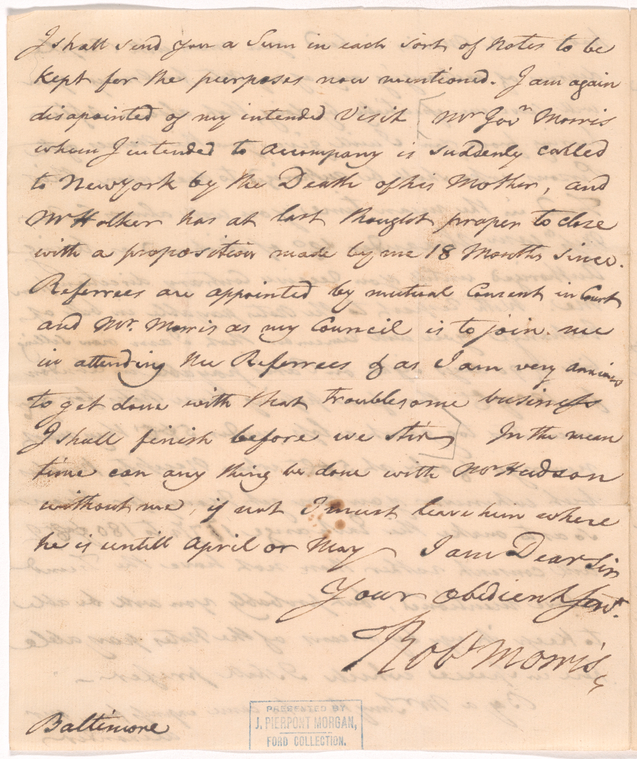 I shall send you a Sum in each sort of Notes to be
kept for the purposes now mentioned. I am again
disapointed of my intended Visit [ Mr Govr Morris
whom I intended to accompany is suddenly called
to New York by the Death of his Mother, and
Mr Holker has at last thought proper to close
with a proposition made by me 18 Months since.
Referrees are appointed by mutual Consent in Court
and Mr. Morris as my Council is to join me
in attending the Referrees & as I am very anxious
to get done with that troublesome business
I shall finish before we stir ] In the mean
time can any thing be done with Mr Hudson
without me, if not I must leave him where
he is untill April or May I am Dear Sir
Your obedient Servt.
Robt Morris
Baltimore
PRESENTED BY
J. PIERPONT MORGAN,
FORD COLLECTION.